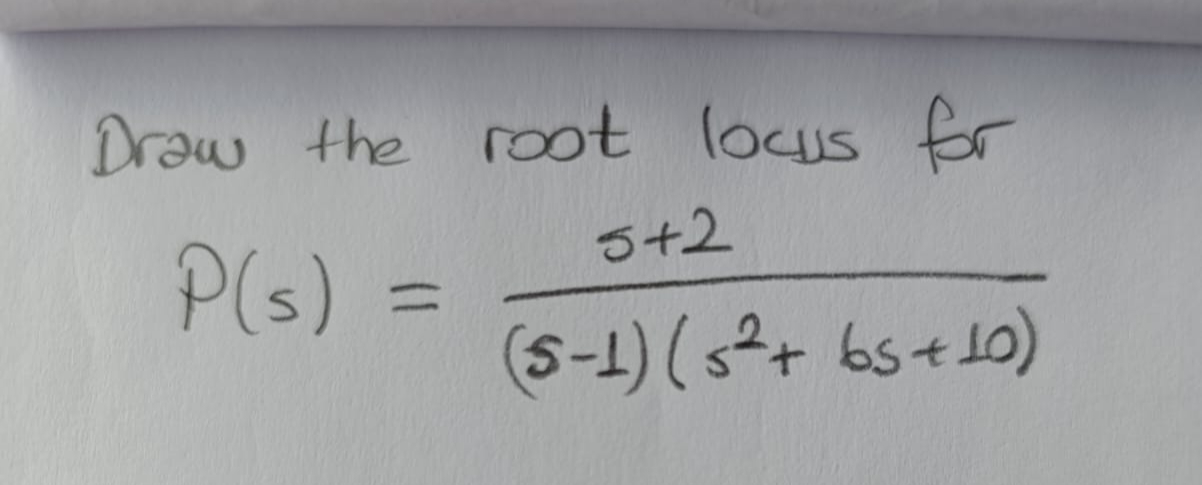 Draw the root locus for
P(s) = s+2 / (s-1)(s²+ 6s+10)